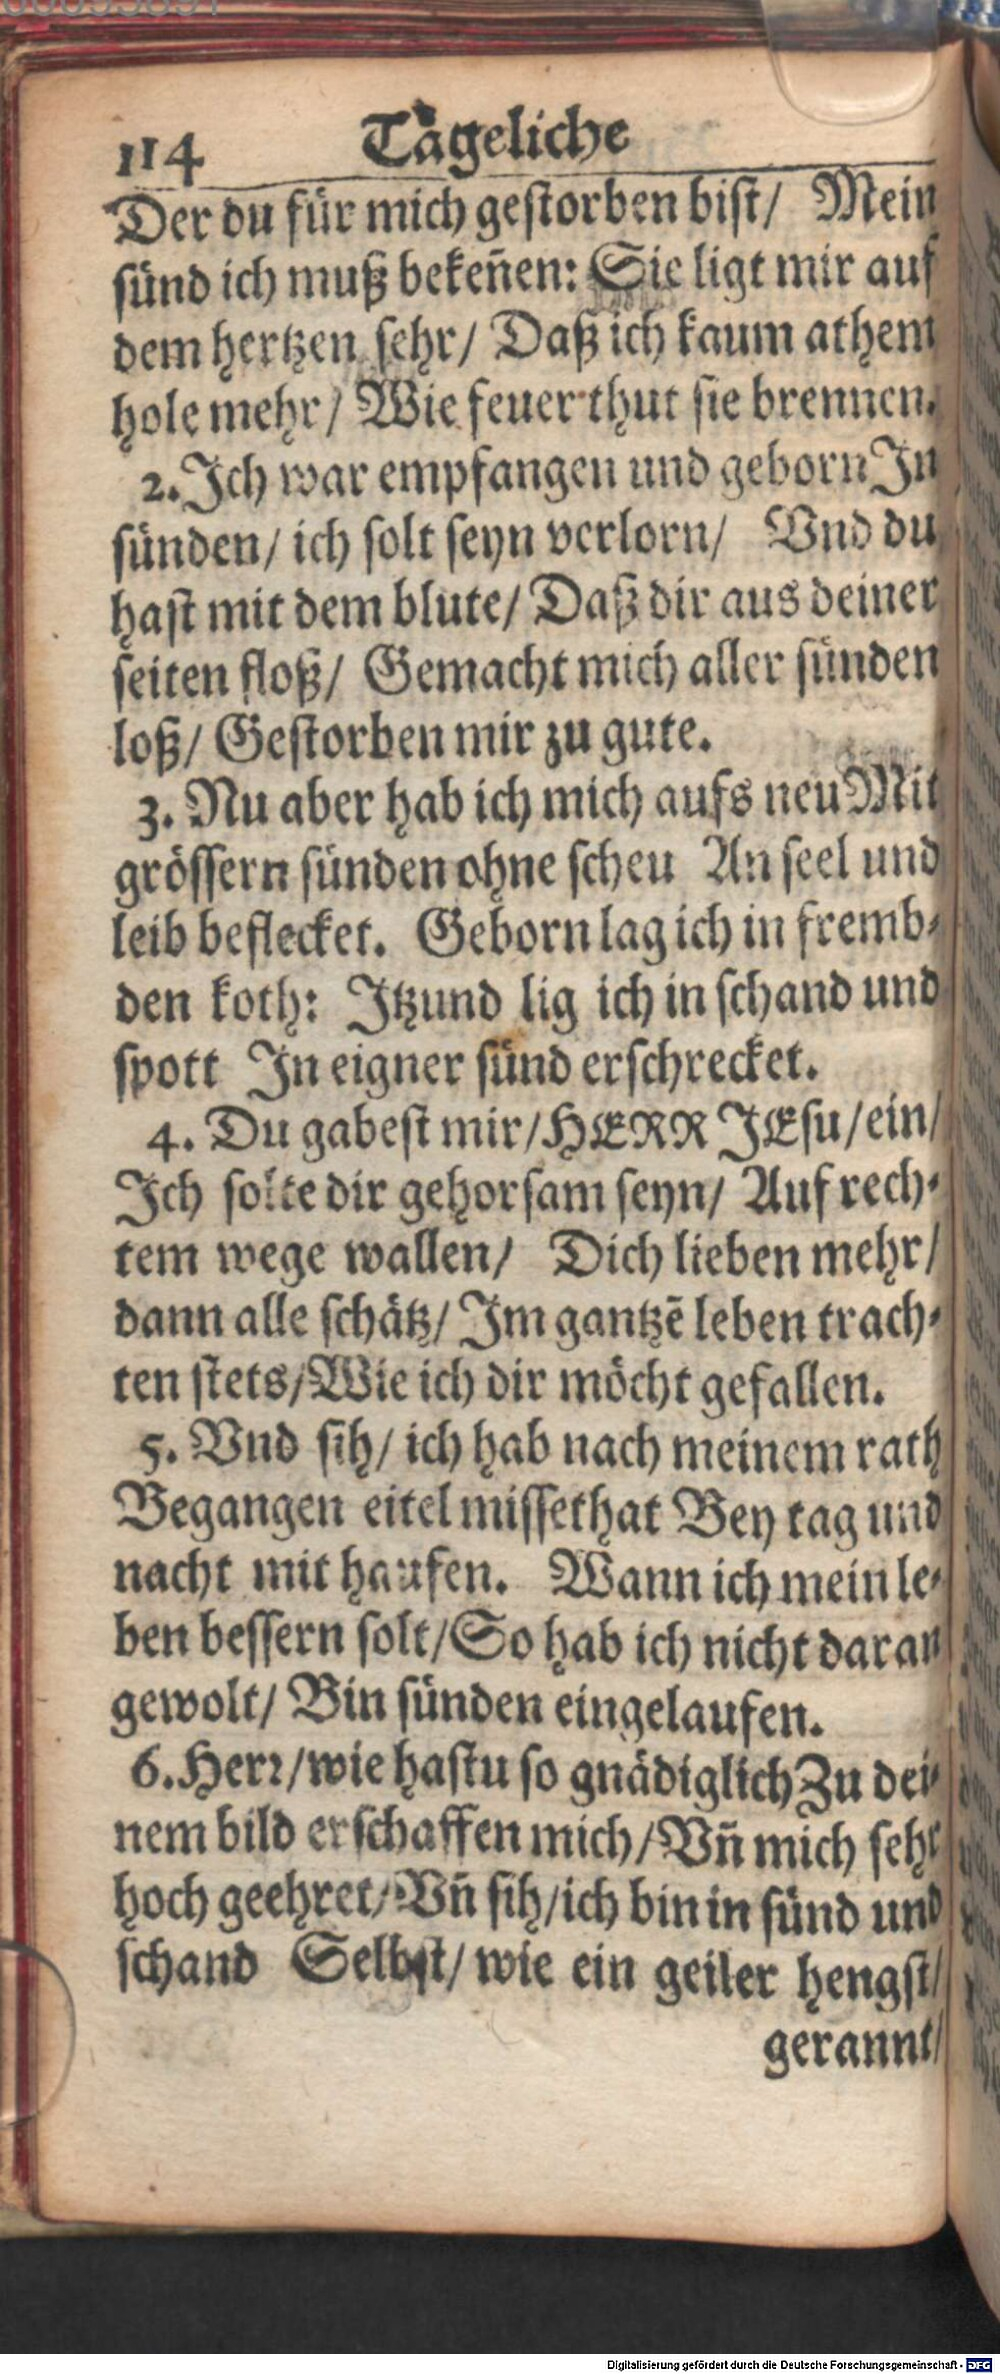 114 Tägeliche
Der du für mich gestorben bist/ Mein
sünd ich muß bekeñen: Sie ligt mir auf
dem hertzen sehr/ Daß ich kaum athem
hole mehr/ Wie feuer thut sie brennen.
2. Ich war empfangen und geborn In
sünden/ ich solt seyn verlorn/ Vnd du
hast mit dem blute/ Daß dir aus deiner
seiten floß/ Gemacht mich aller sünden
loß/ Gestorben mir zu gute.
3. Nu aber hab ich mich aufs neu Mit
grössern sünden ohne scheu An seel und
leib beflecket. Geborn lag ich in fremb-
den koth: Itzund lig ich in schand und
spott In eigner sünd erschrecket.
4. Du gabest mir/ HERR JEsu/ ein/
Ich solte dir gehorsam seyn/ Auf rech-
tem wege wallen/ Dich lieben mehr/
dann alle schätz/ Im gantzē leben trach-
ten stets/ Wie ich dir möcht gefallen.
5. Vnd sih/ ich hab nach meinem rath
Begangen eitel missethat Bey tag und
nacht mit haufen. Wann ich mein le-
ben bessern solt/ So hab ich nicht daran
gewolt/ Bin sünden eingelaufen.
6. Herr/ wie hastu so gnädiglich Zu dei-
nem bild erschaffen mich/ Vñ mich sehr
hoch geehret/ Vñ sih/ ich bin in sünd und
schand Selbst/ wie ein geiler hengst/
gerannt/
Digitalisierung gefördert durch die Deutsche Forschungsgemeinschaft - DFG